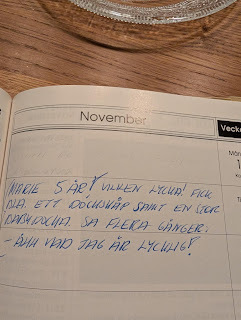 November
Vecka
Mån
1
MARIE 5 ÅR! VILKEN LYCKA! FICK
BLA. ETT DOCKSKÅP SAMT EN STOR
BABYDOCKA. SA FLERA GÅNGER:
- ÅHH VAD JAG ÄR LYCKLIG!